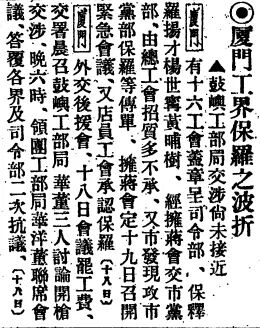 ◉厦門工界保羅之波折
▲鼓嶼工部局交涉尚未接近
厦門 有十六工會蓋章呈司令部、保釋
羅揚才楊世寗黃哺樹、經擁蔣會交市黨
部、由總工會招質多不承、又市發現攻市
黨部保羅等傳單、擁蔣會定十九日召開
緊急會議、又店員工會承認保羅（十八日）
厦門 外交後援會、十八日會議罷工費、
交署晨召鼓嶼工部局華董三人討論開槍
交涉、晚六時、領團工部局華洋董聯席會
議、答覆各界及司令部二次抗議、（十八日）